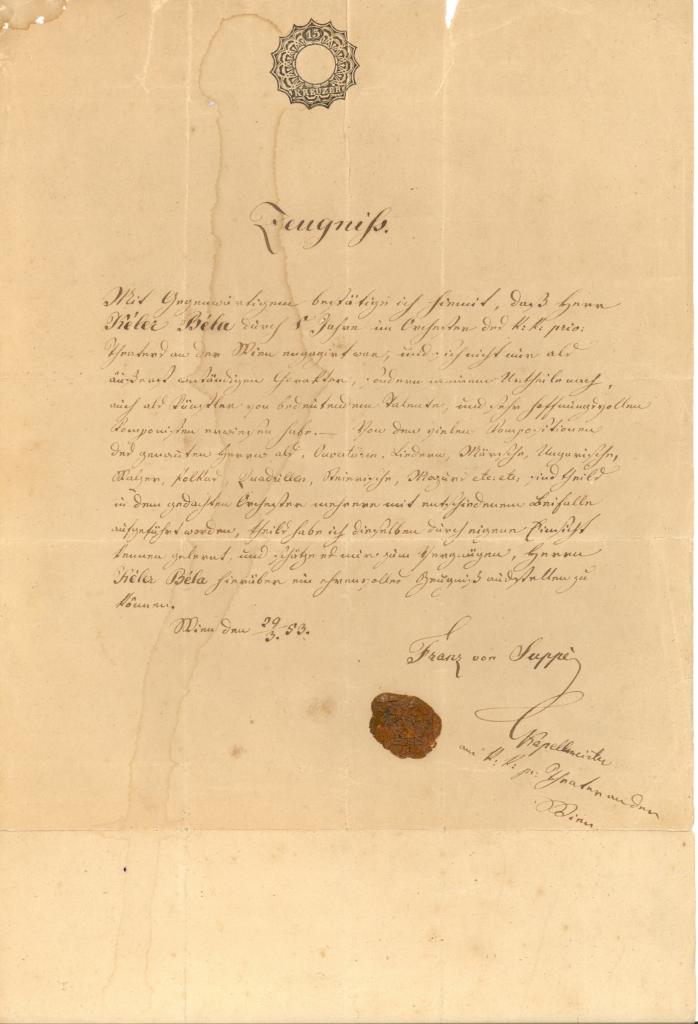 15
KREUZER
Zeugniß.
Mit Gegenwärtigem bestätige ich hiemit, daß Herr
Kéler Béla durch 5 Jahre im Orchester des K: K: priv:
Theaters an der Wien engagirt war, und sich nicht nur als
äußerst anständigen Charakter, sondern meinem Urtheile nach,
auch als Künstler von bedeutendem Talente, und sehr hoffnungsvollen
Componisten erwiesen habe. — Von den vielen Compositionen
des genannten Herrn als, Ouverturen, Liedern, Märsche, Ungarische,
Walzer, Polkas, Quadrillen, Steierische, Mazurs etc: etc: sind theils
in dem gedachten Orchester mehrere mit entschiedenem Beifalle
aufgeführt worden, theils habe ich dieselben durch eigene Einsicht
kennen gelernt, und schätze es mir zum Vergnügen, Herrn
Kéler Béla hierüber ein ehrenvolles Zeugniß ausstellen zu
können.
Wien den 29/3. 53.
Franz von Suppè
Kapellmeister
am K: K: pr: Theater an der
Wien.